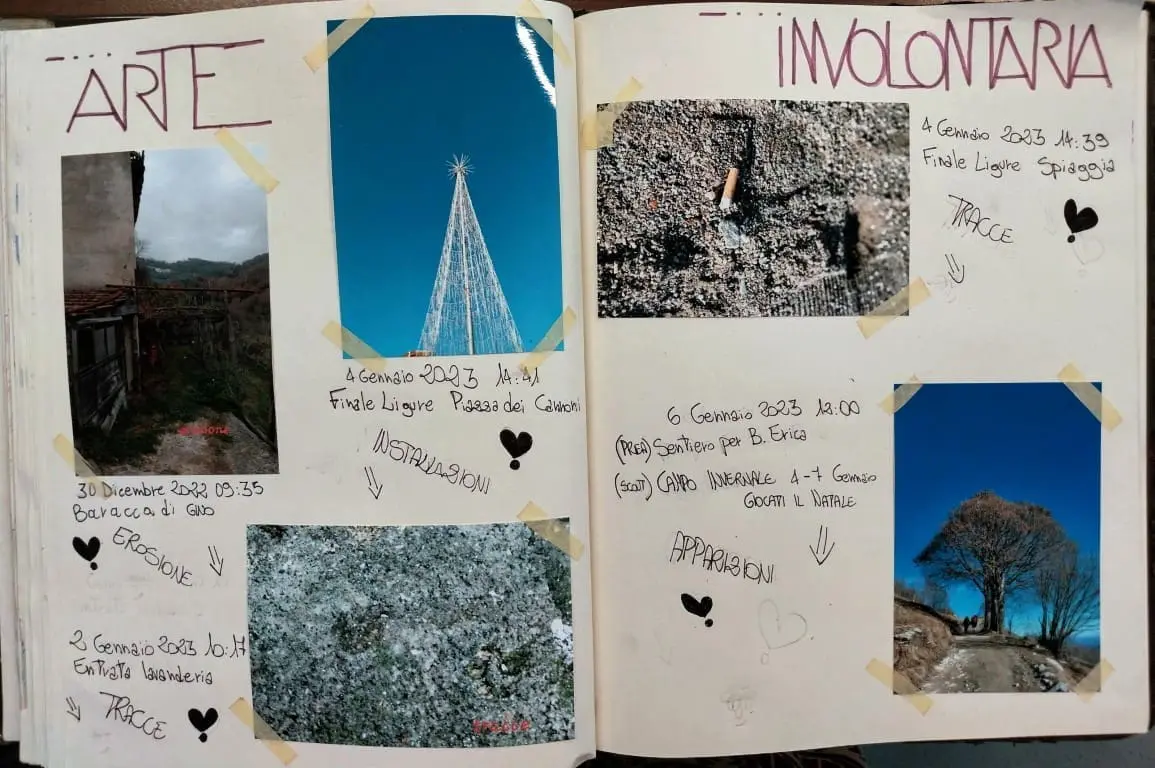 ARTE
erosione
30 Dicembre 2022 09:35
Baracca di GINO
EROSIONE
4 Gennaio 2023 14:41
Finale Ligure Piazza dei Cannoni
INSTALLAZIONI
2 Gennaio 2023 10:17
Entrata lavanderia
TRACCE
tracce
INVOLONTARIA
4 Gennaio 2023 14:39
Finale Ligure Spiaggia
TRACCE
6 Gennaio 2023 12:00
Sentiero per B. Erica
(SCOUT) CAMPO INVERNALE 4-7 Gennaio
GIOCATI IL NATALE
APPARIZIONI